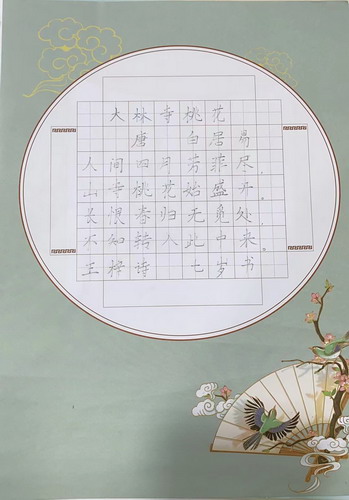 大林寺桃花
唐 白居易
人间四月芳菲尽，
山寺桃花始盛开。
长恨春归无觅处，
不知转入此中来。
王梓诗 七岁书